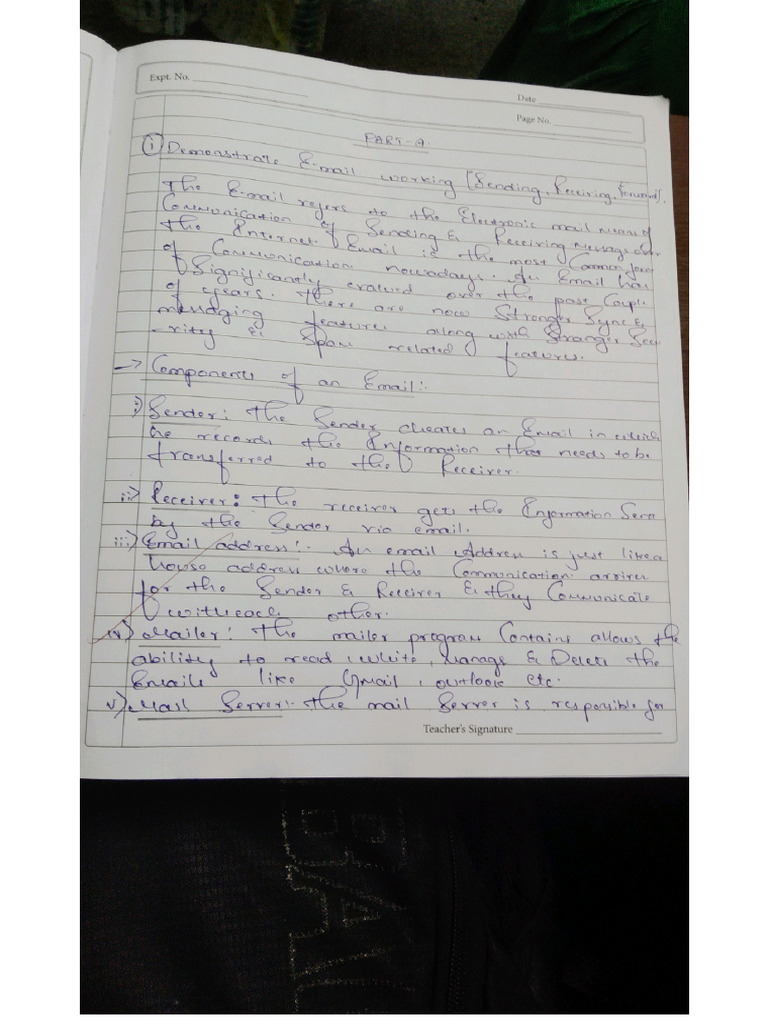 Expt. No.
Date
Page No.
PART-A.
① Demonstrate E-mail working [Sending, Receiving, forward].
The E-mail refers to the Electronic mail means of
Communication of Sending & Receiving Message over
the Internet. Email is the most Common form
of Communication nowadays. An Email has
Significantly evalued over the past Couple
of years. There are now Stronger Sync &
messaging features along with Stranger Secu
-rity & Spam related features.
→ Components of an Email:
i) Sender: The Sender creates an Email in which
he records the Information that needs to be
transferred to the Receiver.
ii) Receiver: The receiver gets the Information Sent
by the Sender via email.
iii) Email address: An email Address is just like a
house address where the Communication arrives
for the Sender & Receiver & they Communicate
with each other.
iv) Mailer: The mailer program Contains allows the
ability to read, write, manage & Delete the
Emails like Gmail, outlook etc.
v) Mail Server: The mail Server is responsible for
Teacher's Signature
BAR